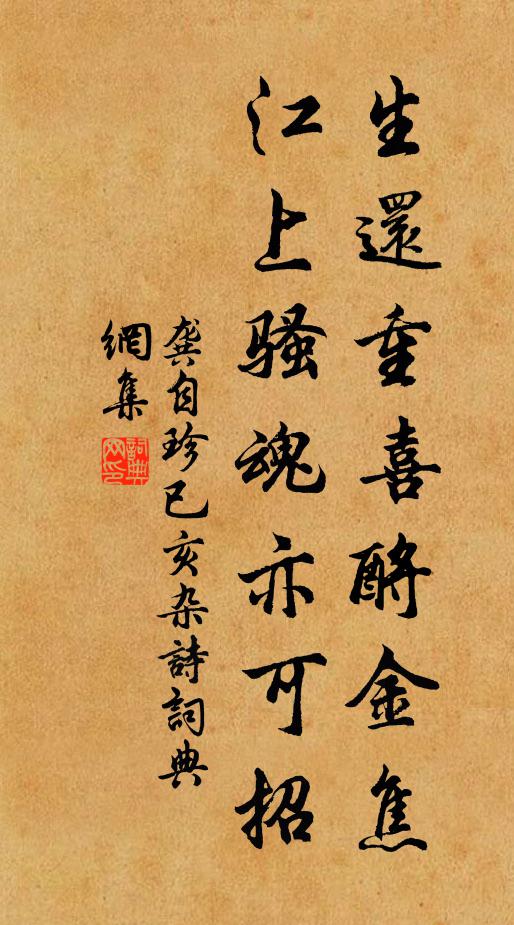 生還重喜酹金焦
江上騷魂亦可招
龔自珍己亥杂詩詞典
網集
詞典
网印